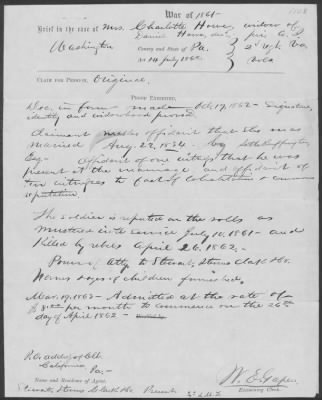 War of 1861
Brief in the case of Mrs. Charlotte Howe, widow of
Daniel Howe, dec. priv. Co. D
Washington County and State of Pa. 2d Regt Va
act 14 July 1862 Vols
CLAIM FOR PENSION. Original.
PROOF EXHIBITED.
Dec. in form made Oct. 17, 1862 - Signature,
identity and widowhood proved
Claimant makes affidavit that she was
married Aug. 22, 1856 - by
Esq - Affidavit of one witness that he was
present at the marriage and affidavit of
two witnesses to fact of cohabitation & common
reputation.
The soldier is reputed on the rolls as
mustered into service July 10, 1861 - and
killed by rebels April 26, 1862. -
Power of Atty to Stewart, Stevens Clark & Co.
Names & ages of children furnished.
Mar. 19, 1863 - Admitted at the rate of
$8 per month to commence on the 26th
day of April 1862 -
P.O. address of Clt.
California
Pa. -
Name and Residence of Agent.
Stewart, Stevens Clark & Co Present
W. E.
Examining Clerk.